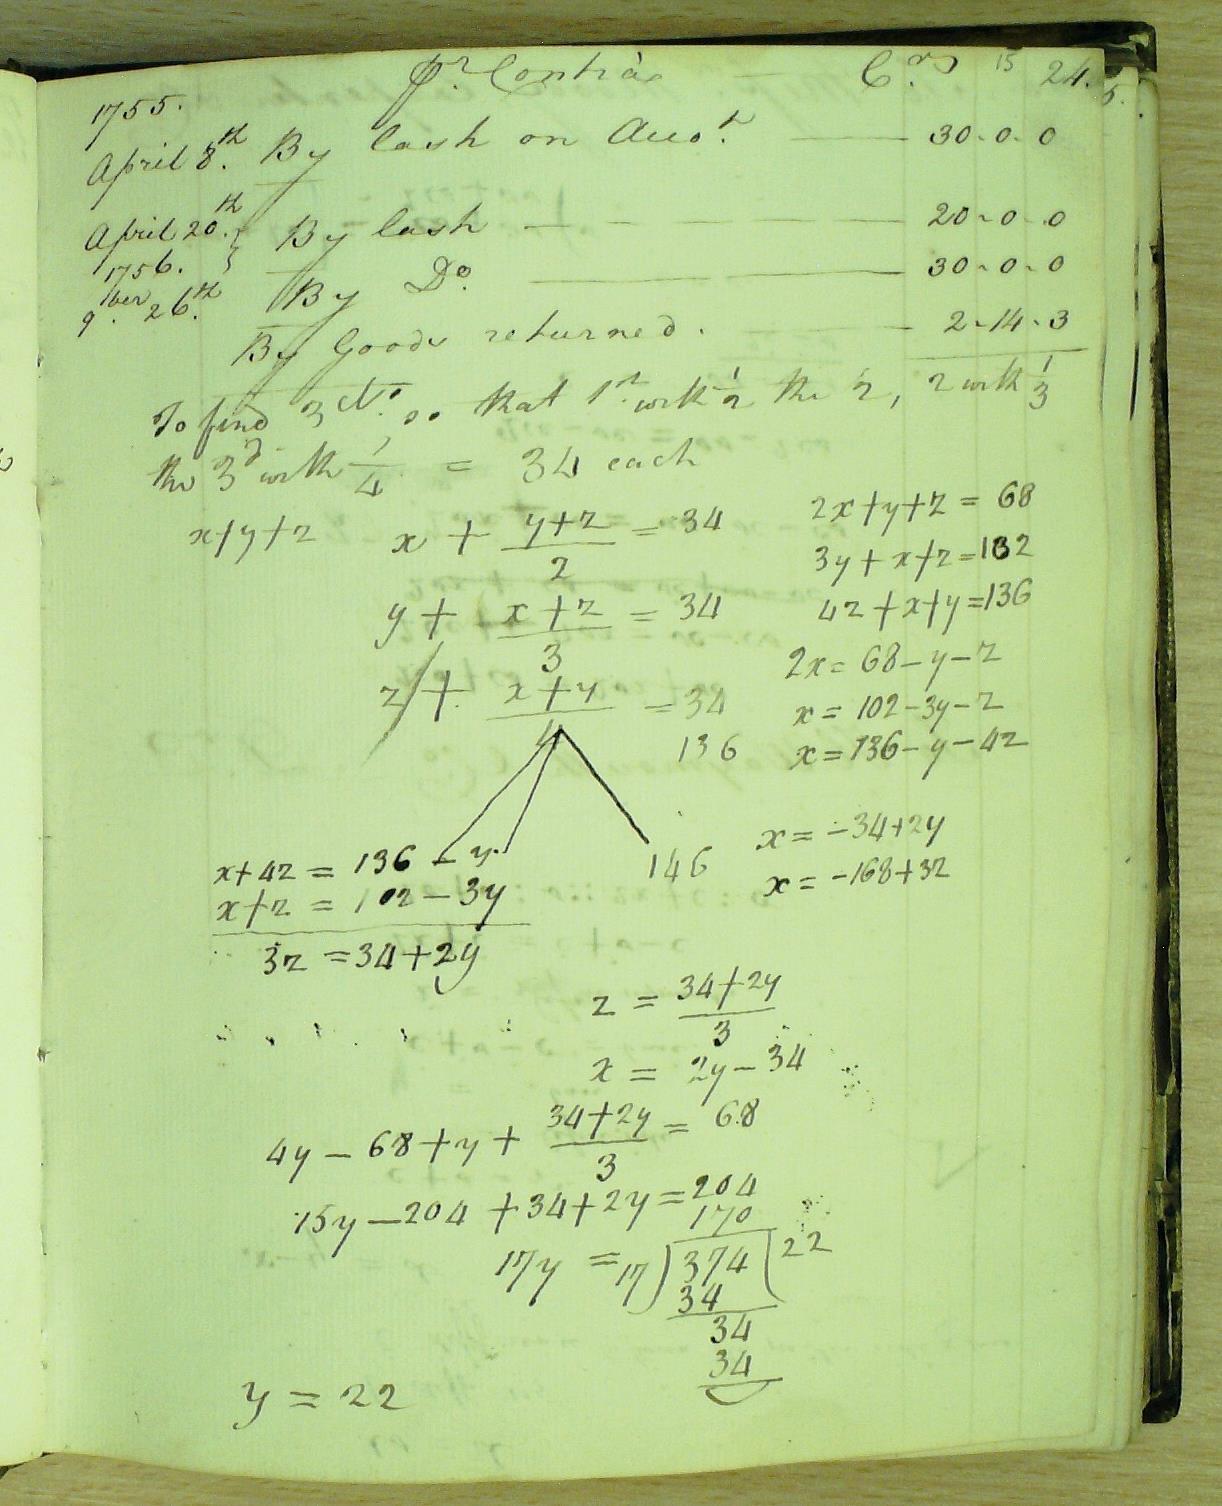 1755. Pr Contra Crs 15 24. 5.
April 8th. By Cash on Accot. 30-0-0
April 20th. By Cash 20-0-0
1756.
9ber 26th. By Do. 30-0-0
By Goods returned. 2-14-3
To find 3 Nos. so that 1st with 1/2 the 2, 2 with 1/3
the 3d with 1/4 = 34 each
x+y+z x + (y+z)/2 = 34 2x+y+z = 68
3y+x+z=102
y + (x+z)/3 = 34 4z+x+y=136
2x= 68-y-z
z + (x+y)/4 = 34 x= 102-3y-z
136 x= 136-y-4z
x= -34+2y
x+4z = 136 - y 146
x= -168+3z
x+z = 102-3y
3z = 34+2y
z = (34+2y)/3
x = 2y-34
4y-68+y+ (34+2y)/3 = 68
15y-204+34+2y=204
170
17y = 17)374(22
34
34
34
y = 22